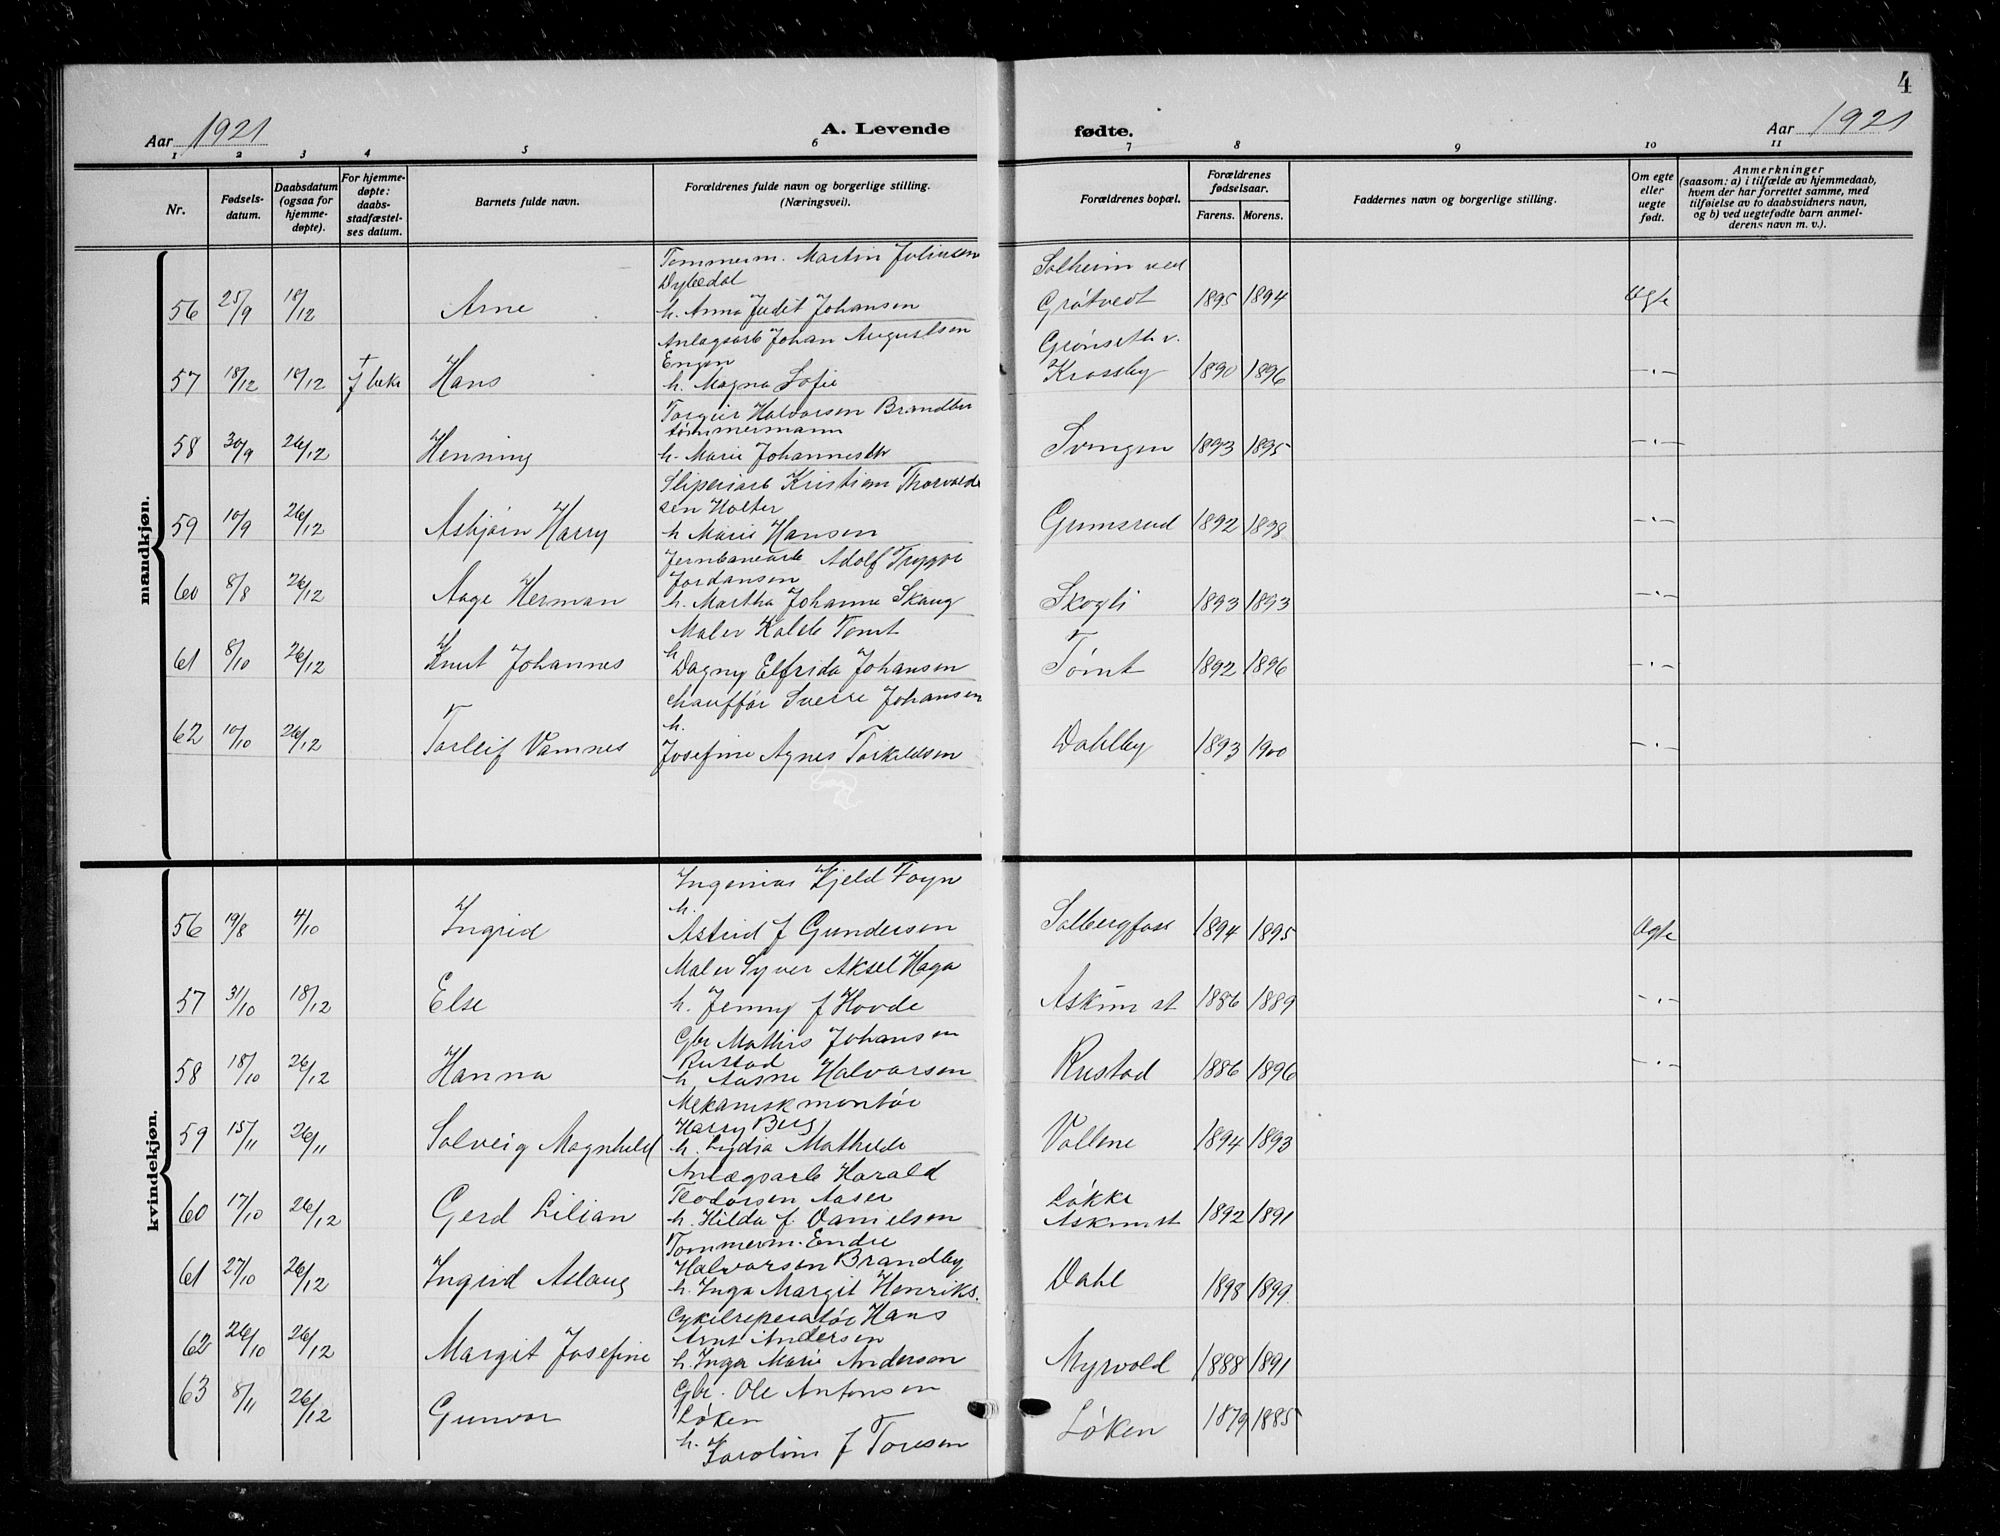 4
Aar 1921 A. Levende fødte. Aar 1921
1 2 3 4 5 6 7 8 9 10 11
Nr. Fødsels-datum. Daabsdatum (ogsaa for hjemme-døpte). For hjemme-døpte: daabs-stadfæstel-ses datum. Barnets fulde navn. Forældrenes fulde navn og borgerlige stilling. (Næringsvei). Forældrenes bopæl. Forældrenes fødselsaar. Farens. Morens. Faddernes navn og borgerlige stilling. Om egte eller uegte født. Anmerkninger (saasom: a) i tilfælde av hjemmedaab, hvem der har forrettet samme, med tilføielse av to daabsvidners navn, og b) ved uegtefødte barn anmel-derens navn m. v.).
mandkjøn.
Tommerm. Martin Juliusen Solheim ved
Dybedal
56 25/9 18/12 Arne h. Anna Judit Johansen Grøtvedt 1895 1894 Egte
Anlagsarb Johan Augustsen Grønseth v.
Engen
57 18/12 18/12 Hans h. Magna Sofie Krossby 1890 1896 -·-
Torgeir Halvorsen Brandby
tømmermann
58 30/9 26/12 Henning h. Marie Johannesdtr Svingen 1893 1895 -·-
Sliperiarb Kristian Thorvald
sen Holter
59 10/9 26/12 Asbjørn Harry h Marie Hansen Grimsrud 1892 1898 -·-
Jernbanearb Adolf Trygve
Jordansen
60 8/8 26/12 Aage Herman h. Martha Johanne Skaug Skogli 1893 1893 -·-
Maler Kaleb Tømt
61 8/10 26/12 Knut Johannes h Dagny Elfrida Johansen Tømt 1892 1896 -·-
Chauffør Sverre Johansen
h.
62 10/10 26/12 Torleif Vamnes Josefine Agnes Torkildsen Dahlby 1893 1900 -·-
kvindekjøn.
Ingeniør Kjeld Foyn
h.
56 19/8 4/10 Ingrid Astrid f Gundersen Solbergfoss 1894 1895 Egte
Maler Syver Aksel Haga
57 31/10 18/12 Else h. Jenny f Hovde Askim st 1886 1889 -·-
Gbr Mathis Johansen
Rustad
58 18/10 26/12 Hanna h. Aasne Halvorsen Rustad 1886 1896 -·-
Mekanisk montør
Harry Berg
59 15/11 26/11 Solveig Magnhild h. Lydia Mathilde Vollene 1894 1893
Anlægsarb Harald
Teodorsen Aaser Løkke
60 17/10 26/12 Gerd Lilian h. Hilda f. Danielsen Askim st 1892 1891
Tommerm. Endre
Halvorsen Brandby
61 27/10 26/12 Ingrid Aslaug h. Inga Margit Henriks. Dahl 1898 1899.
Cykelreperatør Hans
Arnt Andersen
62 26/10 26/12 Margit Josefine h. Inga Marie Anderson Myrvold 1888 1891
Gbr. Ole Antonsen
Løken
63 8/11 26/12 Gunvor h. Karoline f Toresen Løken 1879 1885